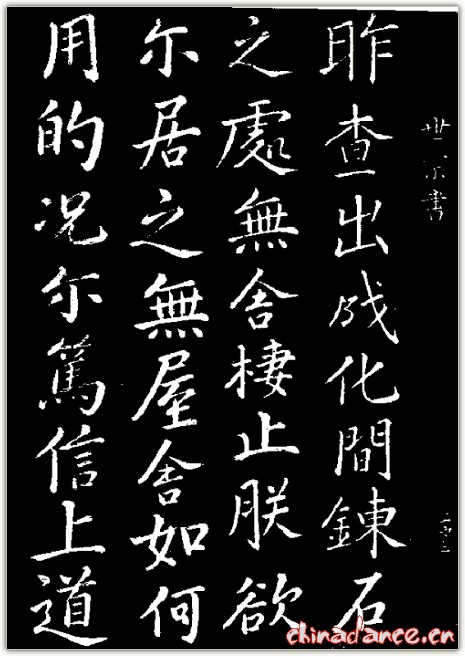 世宗書
昨查出成化間鍊石
之處無舍棲止朕欲
尓居之無屋舍如何
用的况尓篤信上道
chinadance.cn